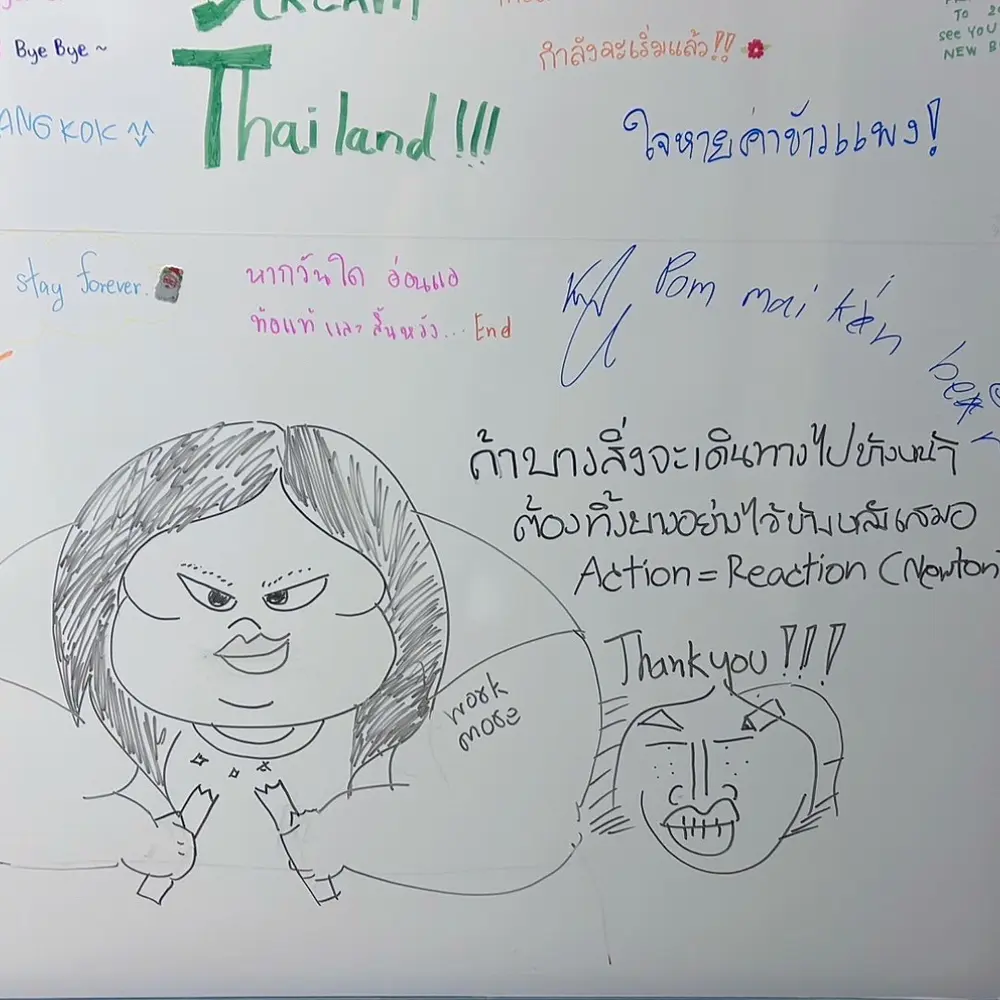 Thailand!!!
Bye Bye ~
กำลังจะเริ่มแล้ว!!
TO
see YOU
NEW
ANGKOK ^^
ใจหายค่าข้าวแพง!
stay forever.
หากวันใด อ่อนแอ
ท้อแท้ และ สิ้นหวัง... End
Pom mai kên
ถ้าบางสิ่งจะเดินทางไปข้างหน้า
ต้องทิ้งบางอย่างไว้ข้างหลังเสมอ
Action = Reaction (Newton
Thank you!!!
work
more